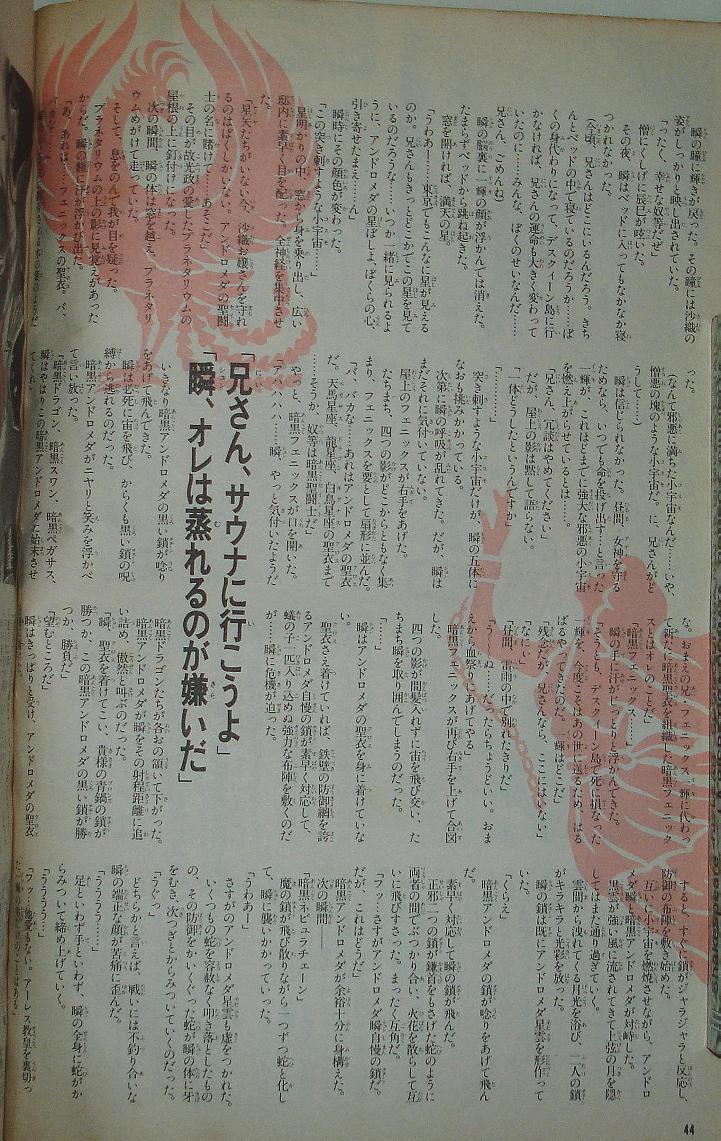 瞬の瞳に輝きが戻った。その瞳には沙織の
姿がしっかりと映し出されていた。
「ったく、幸せな奴等だぜ」
憎にくしげに辰巳が呟いた。
その夜、瞬はベッドに入ってもなかなか寝
つかれなかった。
(今頃、兄さんはどこにいるんだろう。きち
んとベッドの中で寝ているのだろうか……ぼ
くの身代わりになって、デスクィーン島に行
かなければ、兄さんの運命も大きく変わって
いたのに……みんな、ぼくのせなんだ……
兄さん、ごめんね)
瞬の脳裏に一輝の顔が浮かんでは消えた。
たまらずベッドから跳ね起きた。
窓を開ければ、満天の星。
「うわあー……東京でもこんなに星が見える
のか。兄さんもきっとどこかでこの星を見て
いるのだろうな……いつか一緒に見られるよ
うに、アンドロメダの星ぼしよ、ぼくらの心、
引き寄せたまえ……ん」
瞬時にその顔色が変わった。
「この突き刺すような小宇宙……」
星明かりの中、窓から身を乗り出し、広い
邸内に素早く目を配った。全神経を集中させ
た。
「星矢たちがいない今、沙織お嬢さんを守れ
るのはぼくしかいない。アンドロメダの聖闘
士の名に賭け……あそこだ」
その目が故光政の愛したプラネタリウムの
屋根の上に釘付けになった。
次の瞬間、瞬の体は窓を越え、プラネタリ
ウムめがけて走っていた。
そして、息をのんで我が目を疑った。
プラネタリウムの上の影に見覚えがあった
からだ。瞬の額に汗が浮かび出た。
「あ、あれは……フェニックスの聖衣。バ、
バカな」
った。
(なんて邪悪に満ちた小宇宙なんだ……いや、
憎悪の塊のような小宇宙だ。に、兄さんがど
うして……)
瞬は信じられなかった。昼間、女神を守る
ためなら、いつでも命を投げ出す……と言った
一輝が、これほどまでに強大な邪悪の小宇宙
を燃え上がらせているとは……。
「兄さん、冗談はやめてください」
だが、屋上の影は黙して語らない。
「一体どうしたというんですか」
「……」
突き刺すような小宇宙だけが、瞬の五体に
なおも挑みかかっている。
次第に瞬の呼吸が乱れてきた。だが、瞬は
まだそれに気付いていない。
屋上のフェニックスが右手をあげた。
たちまち、四つの影がどこからともなく集
まり、フェニックスを要として扇形に並んだ。
「バ、バカな……あれはアンドロメダの聖衣
だ。天馬星座、龍星座、白鳥星座の聖衣まで
……そうか、奴等は暗黒聖闘士だ」
やっと、暗黒フェニックスが口を開いた。
「アハハハハ……瞬、やっと気付いたようだ
「兄さん、サウナに行こうよ」
「瞬、オレは蒸れるのが嫌いだ」
いきなり暗黒アンドロメダの黒い鎖が唸り
をあげて飛んできた。
瞬は必死に宙を飛び、からくも黒い鎖の呪
縛から逃れるのだった。
暗黒アンドロメダがニヤリと笑みを浮かべ
て言い放った。
「暗黒ドラゴン、暗黒スワン、暗黒ペガサス、
瞬はやはりこの暗黒アンドロメダに始末させ
てくれ」
な。おまえの兄、フェニックス一輝に代わっ
て新たに暗黒聖衣を組織した暗黒フェニック
スとはオレのことだ」
「暗黒フェニックス……」
瞬の手に汗がじっとりと浮かんできた。
「そうとも、デスクィーン島で死に損なった
一輝を、今度こそはあの世に送るため、はる
ばるやってきたのだ。一輝はどこだ」
「残念だが、兄さんなら、ここにはいない」
「なに」
「昼間、雷雨の中で別れたきりだ」
「うーぬ……だったらちょうどいい。おま
えから血祭りにあげてやる」
暗黒フェニックスが再び右手を上げて合図
した。
四つの影が間髪入れずに宙を飛び交い、た
ちまち瞬を取り囲んでしまうのだった。
「……」
瞬はアンドロメダの聖衣を身に着けていな
い。
聖衣さえ着けていれば、鉄壁の防御網を誇
るアンドロメダ自慢の鎖が素早く対応して、
蟻の子一匹入り込めぬ強力な布陣を敷くのだ
が……瞬に危機が迫った。
暗黒ドラゴンたちが各おの頷いて下がった。
暗黒アンドロメダが瞬をその射程距離に追
い詰め、傲然と叫ぶのだった。
「瞬、聖衣を着けてこい、貴様の青銅の鎖が
勝つか、この暗黒アンドロメダの黒い鎖が勝
つか、勝負だ」
「望むところだ」
瞬はきっぱりと受け、アンドロメダの聖衣
すると、すぐに鎖がジャラジャラと反応し、
防御の布陣を敷き始めた。
互いに小宇宙を燃焼させながら、アンドロ
メダ瞬と暗黒アンドロメダが対峙した。
黒雲が強い風に流されてきて上弦の月を隠
してはまた通り過ぎていく。
雲間から洩れてくる月光を浴び、二人の鎖
がキラキラと光彩を放った。
瞬の鎖は既にアンドロメダ星雲を形作って
いた。
「くらえ」
暗黒アンドロメダの鎖が唸りをあげて飛ん
だ。
素早く対応して瞬の鎖が飛んだ。
正邪二つの鎖が鎌首をもさげた蛇のように
両者の間でぶつかり合い、火花を散らして互
いに飛びすさった。まったく互角だ。
「フッ……さすがアンドロメダ瞬自慢の鎖だ。
だが、これはどうだ」
暗黒アンドロメダが余裕十分に身構えた。
次の瞬間、
「暗黒ネビュラチェーン」
魔の鎖が飛び散りながら一つずつ蛇と化し
て、瞬に襲いかかっていった。
「うわあー」
さすがのアンドロメダ星雲も虚をつかれた。
いくつもの蛇を容赦なく叩き落としたもの
の、その防御をかいくぐった蛇が瞬の体に牙
をむき、次つぎとからみついていくのだった。
「うぐっ」
どちらかと言えば、戦いには不釣り合いな
瞬の端正な顔が苦痛に歪んだ。
足といわず手といわず、瞬の全身に蛇がか
らみついて締め上げていく。
「うううう……」
「フッ……他愛もない。アーレス教皇を裏切っ
44